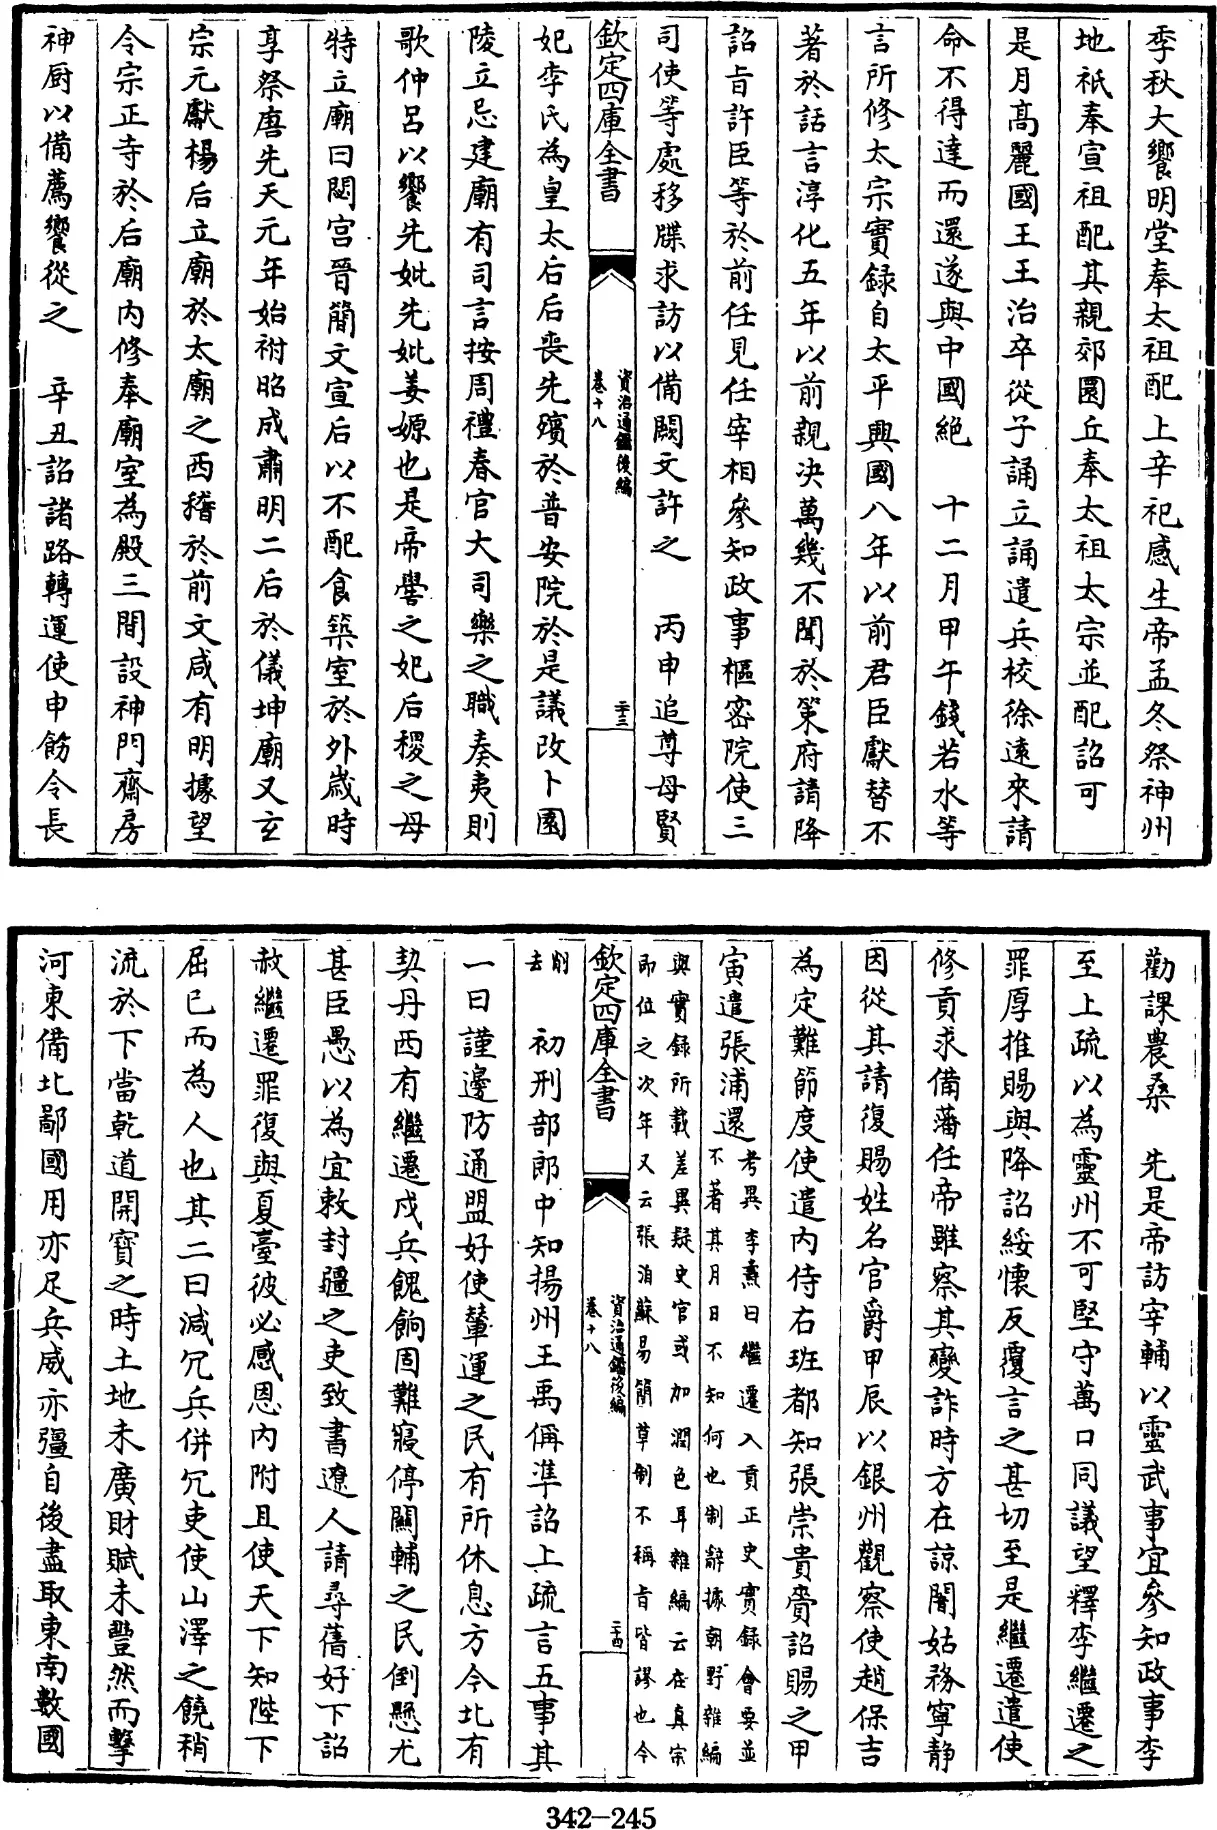 季秋大饗明堂奉太祖配上辛祀感生帝孟冬祭神州
地祇奉宣祖配其親郊圜丘奉太祖太宗並配詔可
是月高麗國王王治卒從子誦立誦遣兵校徐遠來請
命不得達而還遂與中國絶　十二月甲午錢若水等
言所修太宗實録自太平興國八年以前君臣獻替不
著於話言淳化五年以前親决萬幾不聞於策府請降
詔旨許臣等於前任見任宰相參知政事樞密院使三
司使等處移牒求訪以備闕文許之　丙申追尊母賢
欽定四庫全書
資治通鑑後編
卷十八
二十三
妃李氏為皇太后后喪先殯於普安院於是議改卜園
陵立忌建廟有司言按周禮春官大司樂之職奏夷則
歌仲呂以饗先妣先妣姜嫄也是帝嚳之妃后稷之母
特立廟曰閟宫晉簡文宣后以不配食築室於外歲時
享祭唐先天元年始祔昭成肅明二后於儀坤廟又玄
宗元獻楊后立廟於太廟之西稽於前文咸有明據望
令宗正寺於后廟内修奉廟室為殿三間設神門齋房
神厨以備薦饗從之　辛丑詔諸路轉運使申飭令長
勸課農桑　先是帝訪宰輔以靈武事宜參知政事李
至上疏以為靈州不可堅守萬口同議望釋李繼遷之
罪厚推賜與降詔綏懷反覆言之甚切至是繼遷遣使
修貢求備藩任帝雖察其變詐時方在諒闇姑務寧静
因從其請復賜姓名官爵甲辰以銀州觀察使趙保吉
為定難節度使遣内侍右班都知張崇貴賫詔賜之甲
寅遣張浦還考異李燾曰繼遷入貢正史實録會要並
不著其月日不知何也制辭據朝野雜編
與實録所載差異疑史官或加潤色耳雜編云在真宗
即位之次年又云張洎蘇易簡草制不稱旨皆謬也今
欽定四庫全書
資治通鑑後編
卷十八
二十四
削
去　初刑部郎中知揚州王禹偁準詔上疏言五事其
一曰謹邊防通盟好使輦運之民有所休息方今北有
契丹西有繼遷戍兵餽餉固難寢停關輔之民倒懸尤
甚臣愚以為宜敕封疆之吏致書遼人請尋舊好下詔
赦繼遷罪復與夏臺彼必感恩内附且使天下知陛下
屈已而為人也其二曰減冗兵併冗吏使山澤之饒稍
流於下當乾道開寶之時土地未廣財賦未豐然而擊
河東備北鄙國用亦足兵威亦彊自後盡取東南數國
342-245